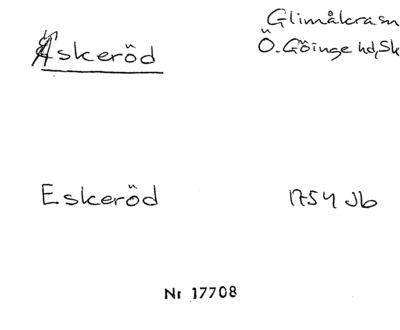 Glimåkra sn
Äskeröd Ö. Göinge hd, Sk
Eskeröd 1754 Jb
Nr 17708